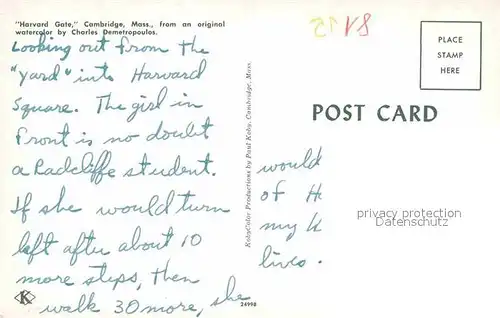 "Harvard Gate," Cambridge, Mass., from an original
watercolor by Charles Demetropoulos.
Looking out from the
"yard" into Harvard
Square. The girl in
front is no doubt
a Radcliffe student.
If she would turn
left after about 10
more steps, then
walk 30 more, she
K
24998
KobyColor Productions by Paul Koby, Cambridge, Mass.
PLACE
STAMP
HERE
POST CARD
would
of H
my
lives.
privacy protection
Datenschutz